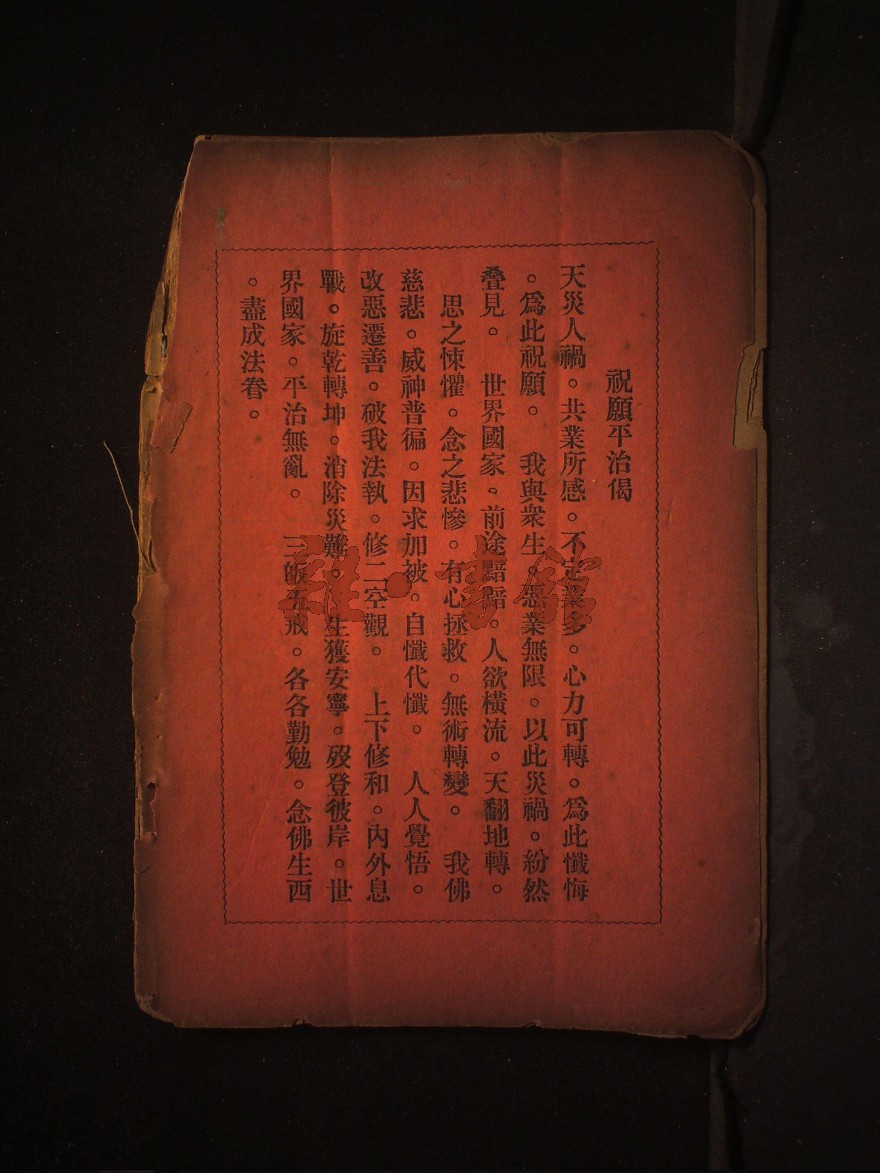 祝願平治偈
天災人禍。共業所感。不定業多。心力可轉。爲此懺悔
。爲此祝願。　我與衆生。惡業無限。以此災禍。紛然
叠見。　世界國家。前途黯黯。人欲橫流。天翻地轉。
思之悚懼。念之悲慘。有心拯救。無術轉變。　我佛
慈悲。威神普徧。因求加被。自懺代懺。　人人覺悟。
改惡遷善。破我法執。修二空觀。　上下修和。內外息
戰。旋乾轉坤。消除災難。生獲安寧。歿登彼岸。世
界國家。平治無亂。　三皈五戒。各各勤勉。念佛生西
。盡成法眷。
雜·書館